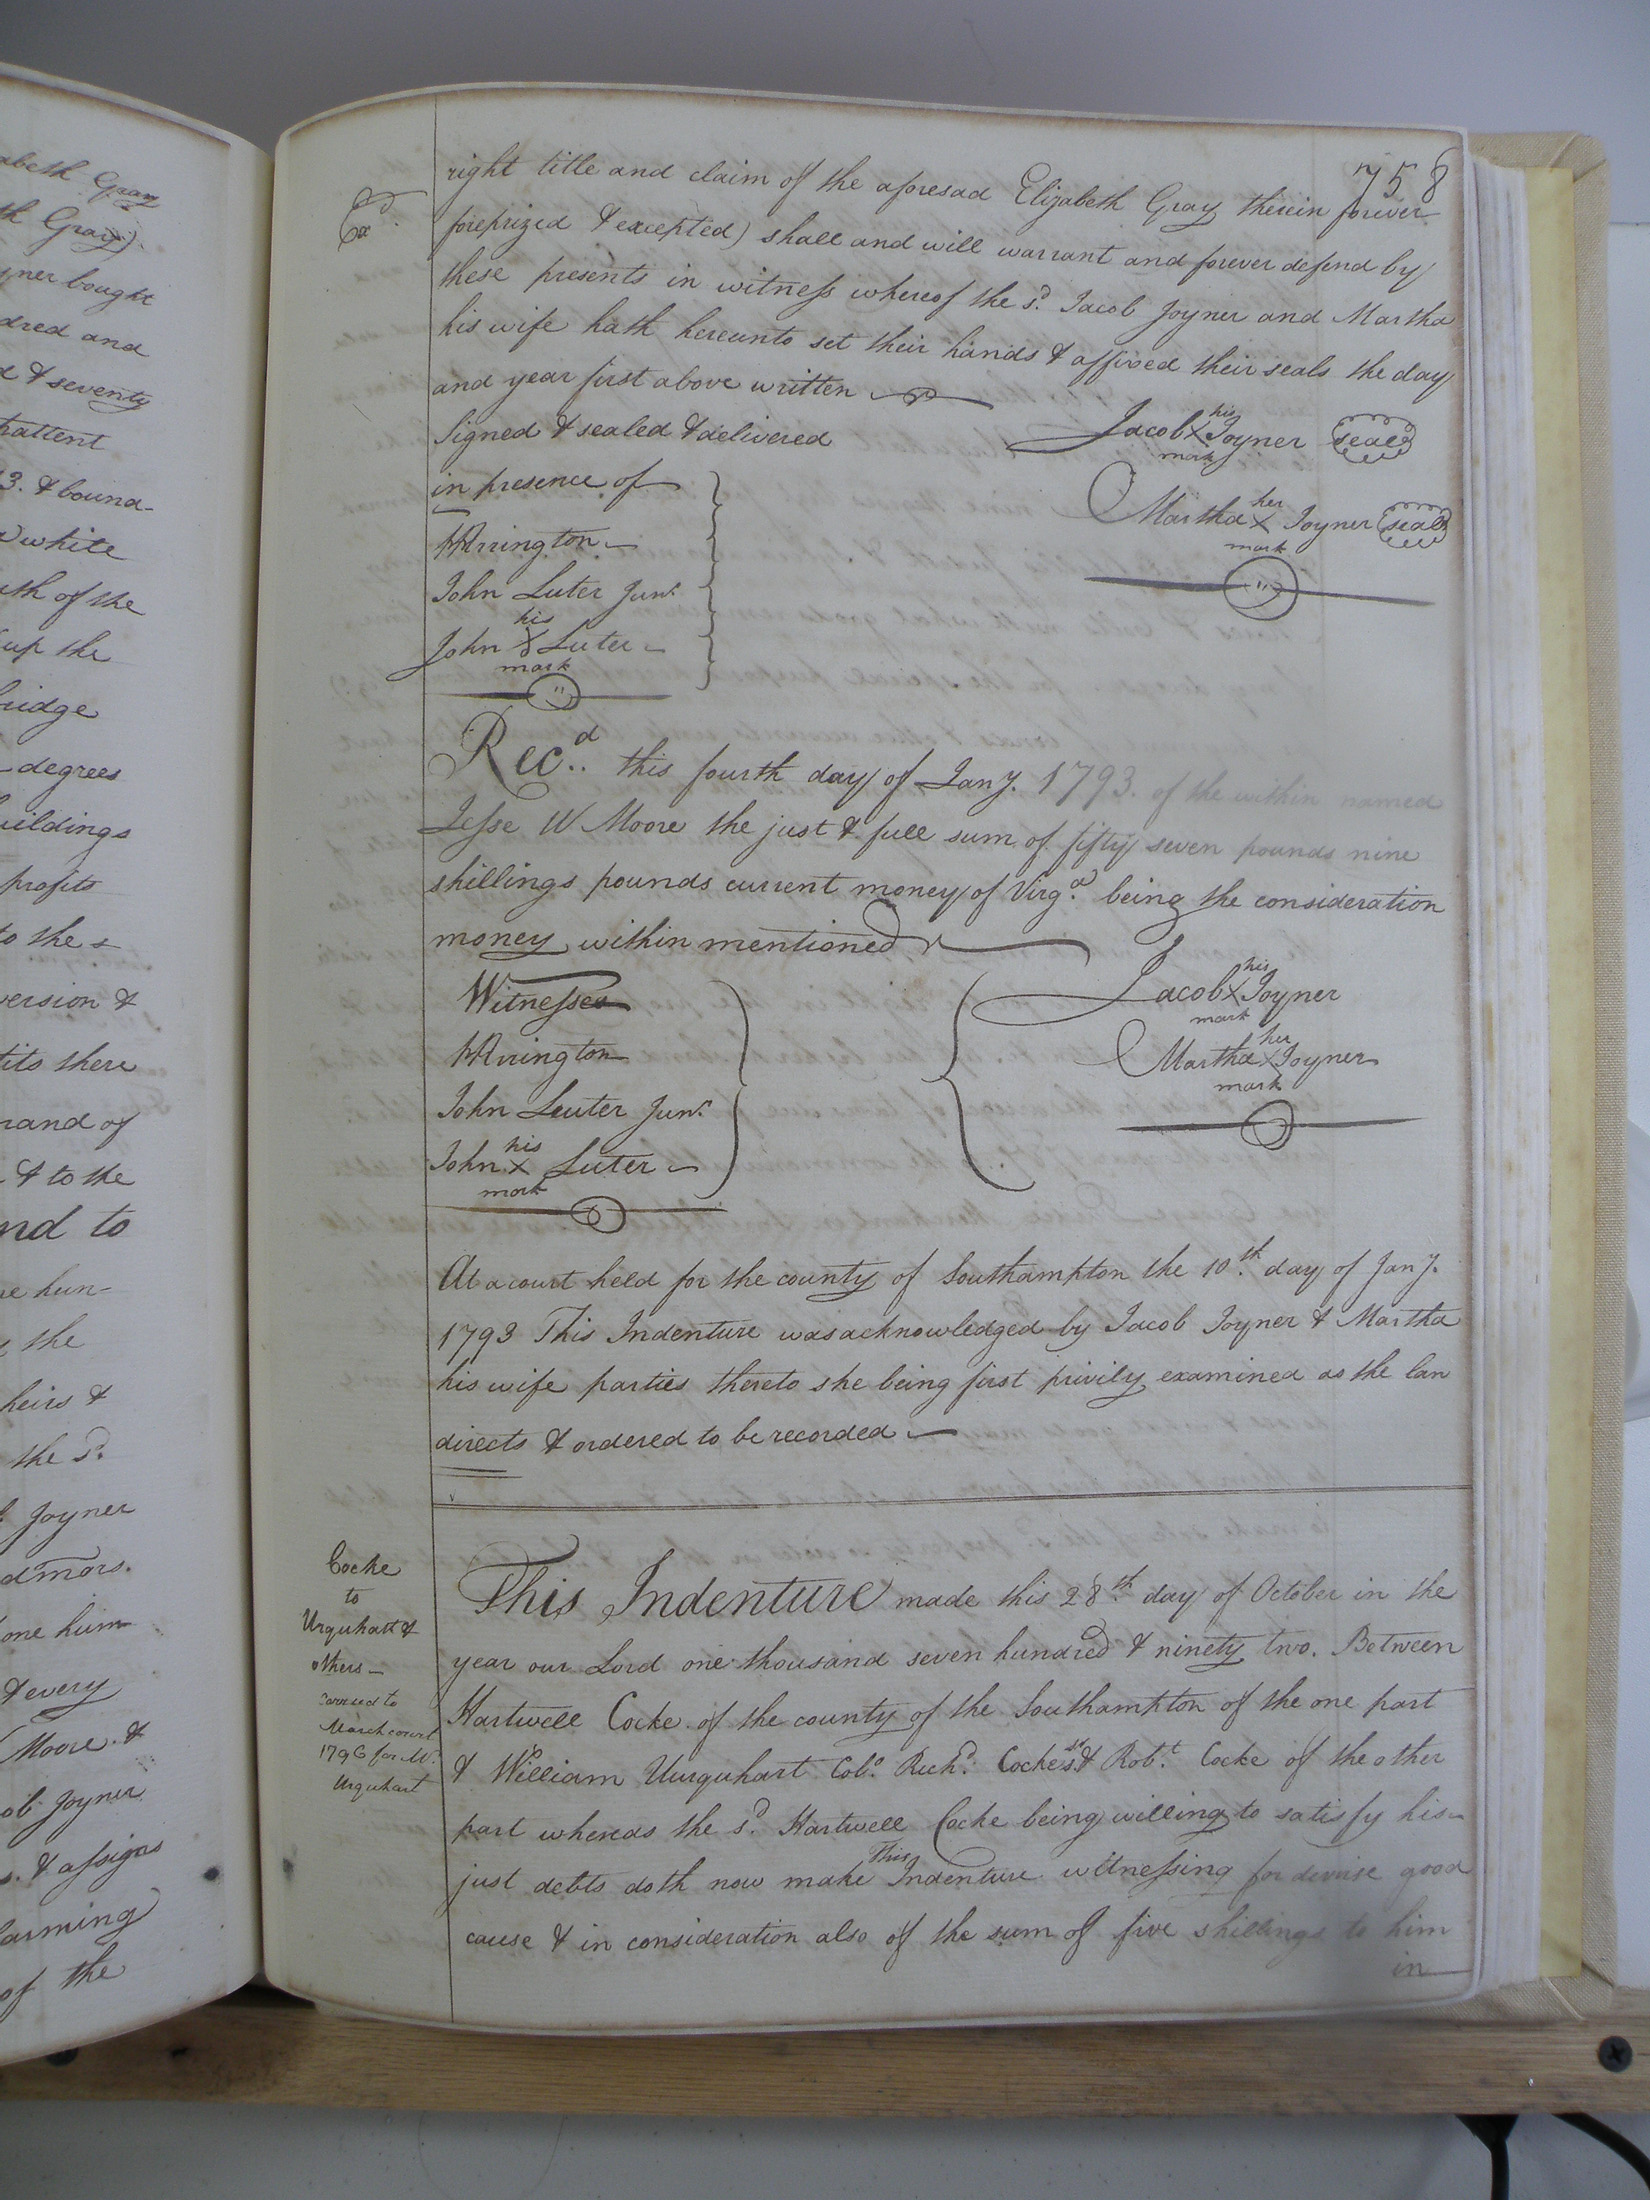 abeth Gray
th Gray)
yner bought
dred and
d & seventy
pattent
3. & bound-
white
uth of the
up the
bridge
degrees
buildings
profits
to the &
version &
fits there
mand of
& to the
and to
ne hun-
the
heirs &
the sd.
Joyner
admors.
one hun
& every
Moore &
ob Joyner
s. & assigns
arming
of the
758
right title and claim of the aforesad Elizabeth Gray therein forever
Exd.
foreprized & excepted) shall and will warrant and forever defend by
these presents in witness whereof the sd. Jacob Joyner and Martha
his wife hath hereunto set their hands & affixed their seals the day
and year first above written
Signed & sealed & delivered
in presence of
Jacob his X mark Joyner seal
Martha her X mark Joyner seal
Arrington
John Luter Junr.
John his X mark Luter
Recd. this fourth day of Jany. 1793. of the within named
Jesse W Moore the just & full sum of fifty seven pounds nine
shillings pounds current money of Virga. being the consideration
money within mentioned
Witnesses
Jacob his X mark Joyner
Arrington
Martha her X mark Joyner
John Leuter Junr.
John his X mark Luter
At a court held for the county of Southampton the 10th. day of Jany.
1793 This Indenture was acknowledged by Jacob Joyner & Martha
his wife parties thereto she being first privily examined as the law
directs & ordered to be recorded
Cocke
to
Urquhart &
others
March court
1796 for Mr.
Urquhart
This Indenture made this 28th. day of October in the
year our Lord one thousand seven hundred & ninety two. Between
Hartwell Cocke of the county of the Southampton of the one part
& William Uurquhart Colo. Richd. Cocke & Robt. Cocke of the other
part whereas the sd. Hartwell Cocke being willing to satisfy his
just debts doth now make This Indenture witnessing for good
cause & in consideration also of the sum of five shillings to him
in